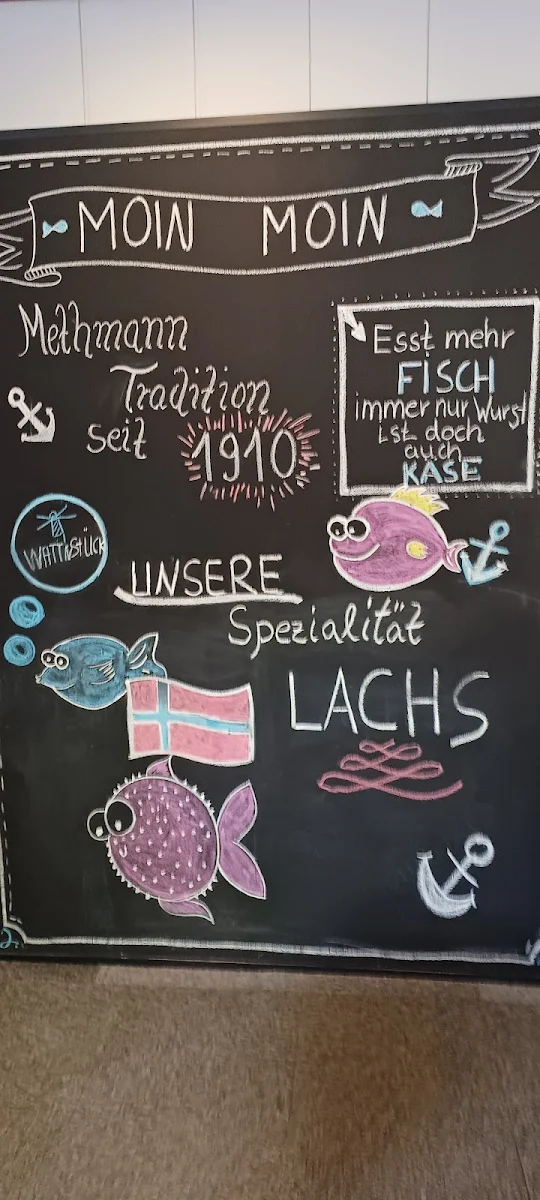 MOIN MOIN
Methmann
Tradition
seit 1910
Esst mehr
FISCH
immer nur Wurst
ist doch
auch
KÄSE
UNSERE
Spezialität
LACHS